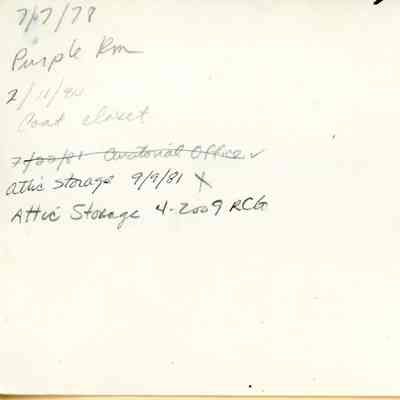 7/7/78
Purple Rm
2/11/80
Coat closet
7/20/81 Curatorial Office ✓
Attic Storage 9/9/81 X
Attic Storage 4-2009 RCG